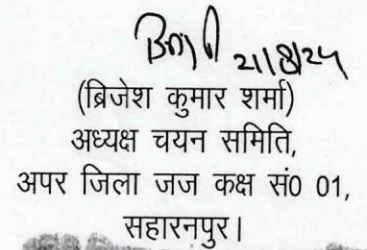 21/8/24
(ब्रिजेश कुमार शर्मा)
अध्यक्ष चयन समिति,
अपर जिला जज कक्ष सं0 01,
सहारनपुर।